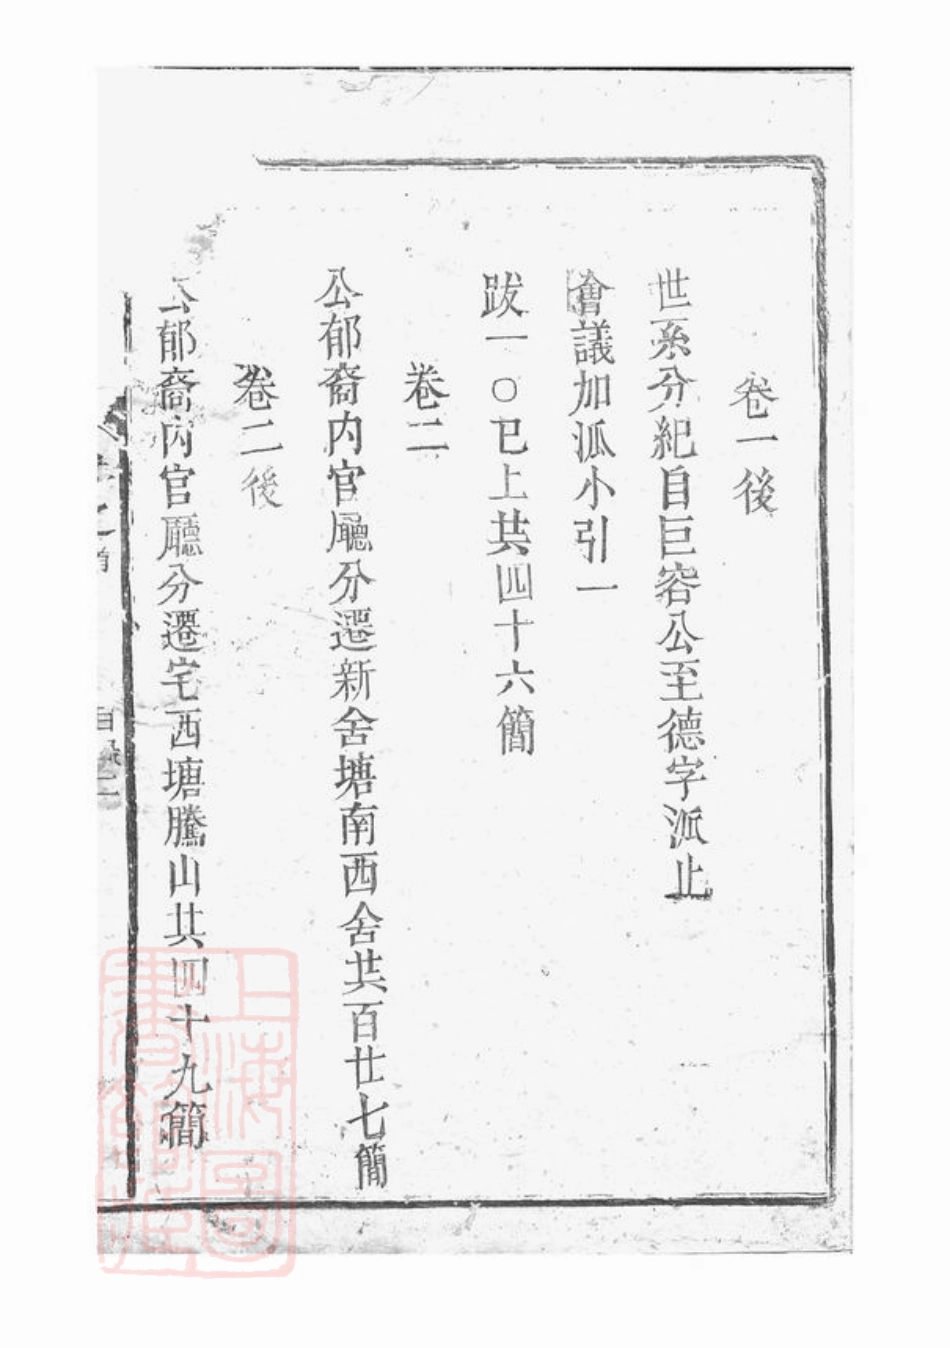 卷一後
世系分紀自巨容公至德字派止
會議加派小引一
跋一〇已上共四十六簡
卷二
公郁裔内官廳分遷新舍塘南西舍共百廿七簡
卷二後
公郁裔内官廳分遷宅西塘騰山共四十九簡
首
目錄二
上海圖書館藏